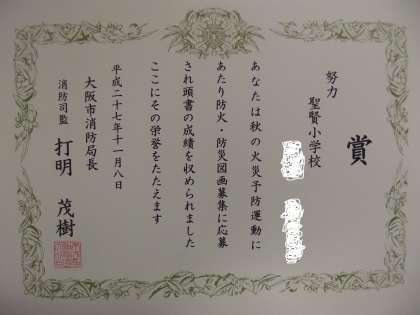 努力
賞
聖賢小学校
あなたは秋の火災予防運動に
あたり防火・防災図画募集に応募
され頭書の成績を収められました
ここにその栄誉をたたえます
平成二十七年十一月八日
大阪市消防局長
消防司監 打明 茂樹